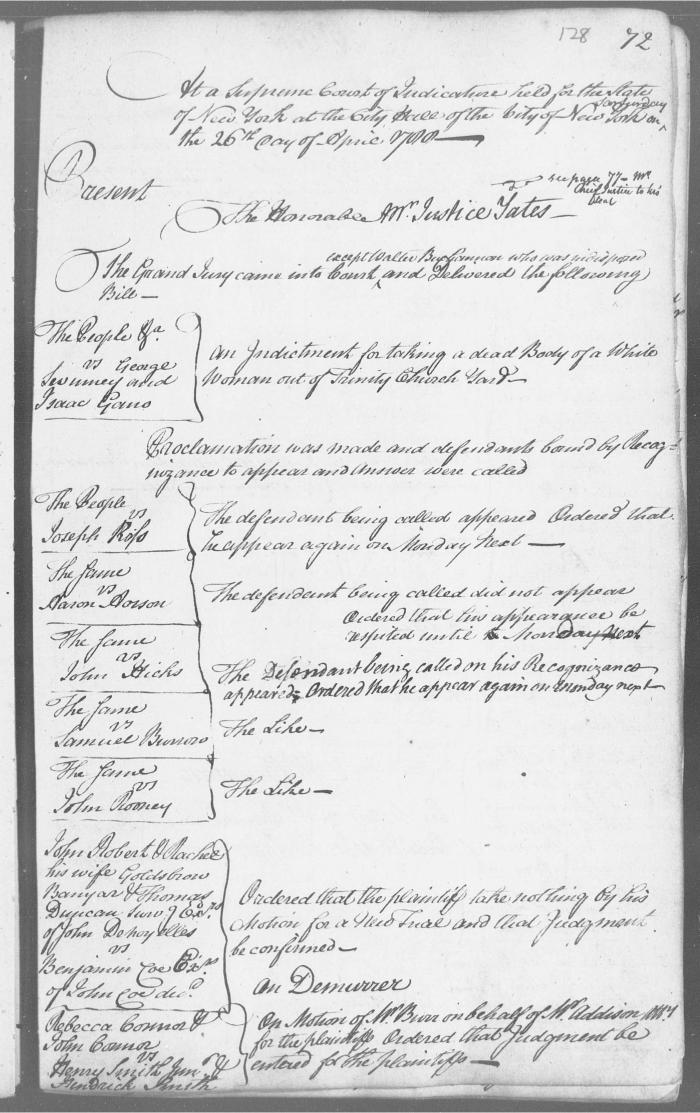 128 72
At a Supreme Court of Judicature held for the State
of New York at the City Hall of the City of New York on Saturday
the 26th Day of April 1788
see page 77 Mr
Chief Justice to his
Seat
Present
The Honorable Mr. Justice Yates
except Walter Buchannan who was indisposed
The Grand Jury came into Court and Delivered the following
Bill
The People &a.
vs George
Swinney and
Isaac Gano
an Indictment for taking a dead Body of a White
Woman out of Trinity Church Yard
Proclamation was made and defendants bound by Recog-
nizance to appear and answer were called
The People
vs
Joseph Ross
The defendant being called appeared Ordered that
he appear again on Monday Next
The same
vs
Aaron
The defendent being called did not appear
Ordered that his appearance be
respited until Monday Next
The same
vs
John Hicks
The Defendant being called on his Recognizance
appeared Ordered that he appear again on Monday next
The same
vs
Samuel Burrow
The Like
The same
vs
John Rooney
The Like
John Robert & Rachel
his wife Goldsbrow
Banyar & Thomas
Duncan surv.g Exrs
of John
vs
Benjamin Coe Exrs.
of John Coe decd.
Ordered that the plaintiffs take nothing by his
Motion for a New Trial and that Judgment
be confirmed
Rebecca Connor &
John Connor
vs
Henry Smith Jun &
Smith
an Demurrer
On Motion of Mr Burr on behalf of Mr Addison Atty
for the plaintiffs Ordered that Judgment be
entered for the plaintiffs